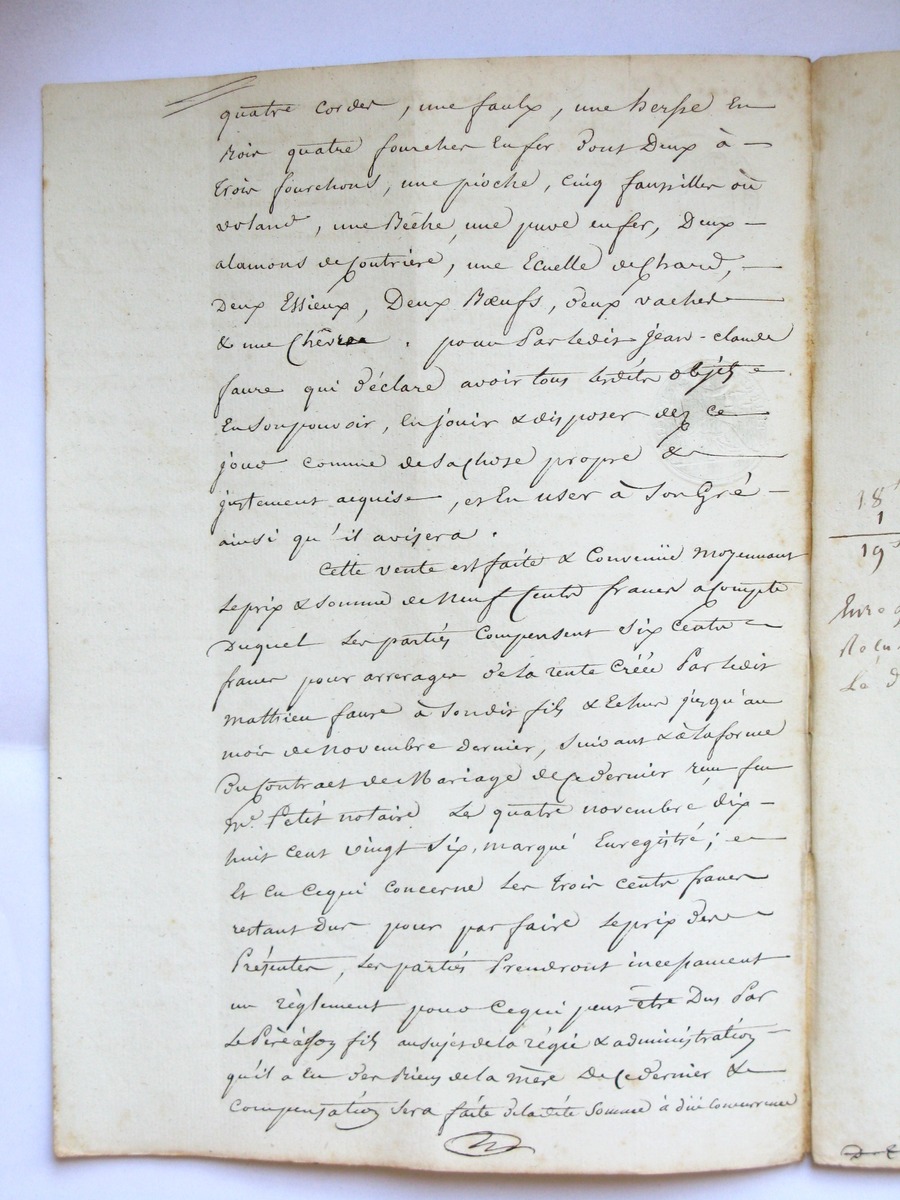 quatre cordes, une faulx, une herse en
bois quatre fourches en fer dont deux à
trois fourchons, une pioche, cinq faussilles ou
volans, une Bêche, une en fer, Deux
de Coutrière, une Ecuelle de Chard,
Deux Essieux, Deux Bœufs, deux vaches
& une Chêvre. pour Par ledit jean-claude
faure qui déclare avoir tous lesdits objets
En son pouvoir, en jouir & disposer dès ce
jour comme de sa chose propre &
justement acquise, et En user à Son Gré
ainsi qu'il avisera.
Cette vente est faite & Convenüe moyennant
le prix & somme de Neuf Cents francs acompte
Duquel Les parties Compensent Six Cents
francs pour arrerages de la rente Créée Par ledit
Mathieu faure à Sondit fils & Echus jusqu'au
mois de Novembre Dernier, suivant & à la forme
Du Contract de Mariage de Ce dernier reçu feu
Me. Petit notaire Le quatre novembre dix
huit cent vingt Six, marqué Enregistré; et
Et en Cequi Concerne Les trois cents francs
restant Dus pour parfaire le prix des
Présentes, Les parties Prendront incessament
un règlement pour Cequi peut être Dus Par
Le Père à Son fils au sujet de la régie & administration
qu'il a Eu des Biens de la mère De Ce dernier &
Compensation Sera faite de ladite Somme à düe Concurrence
18
1
19
Le